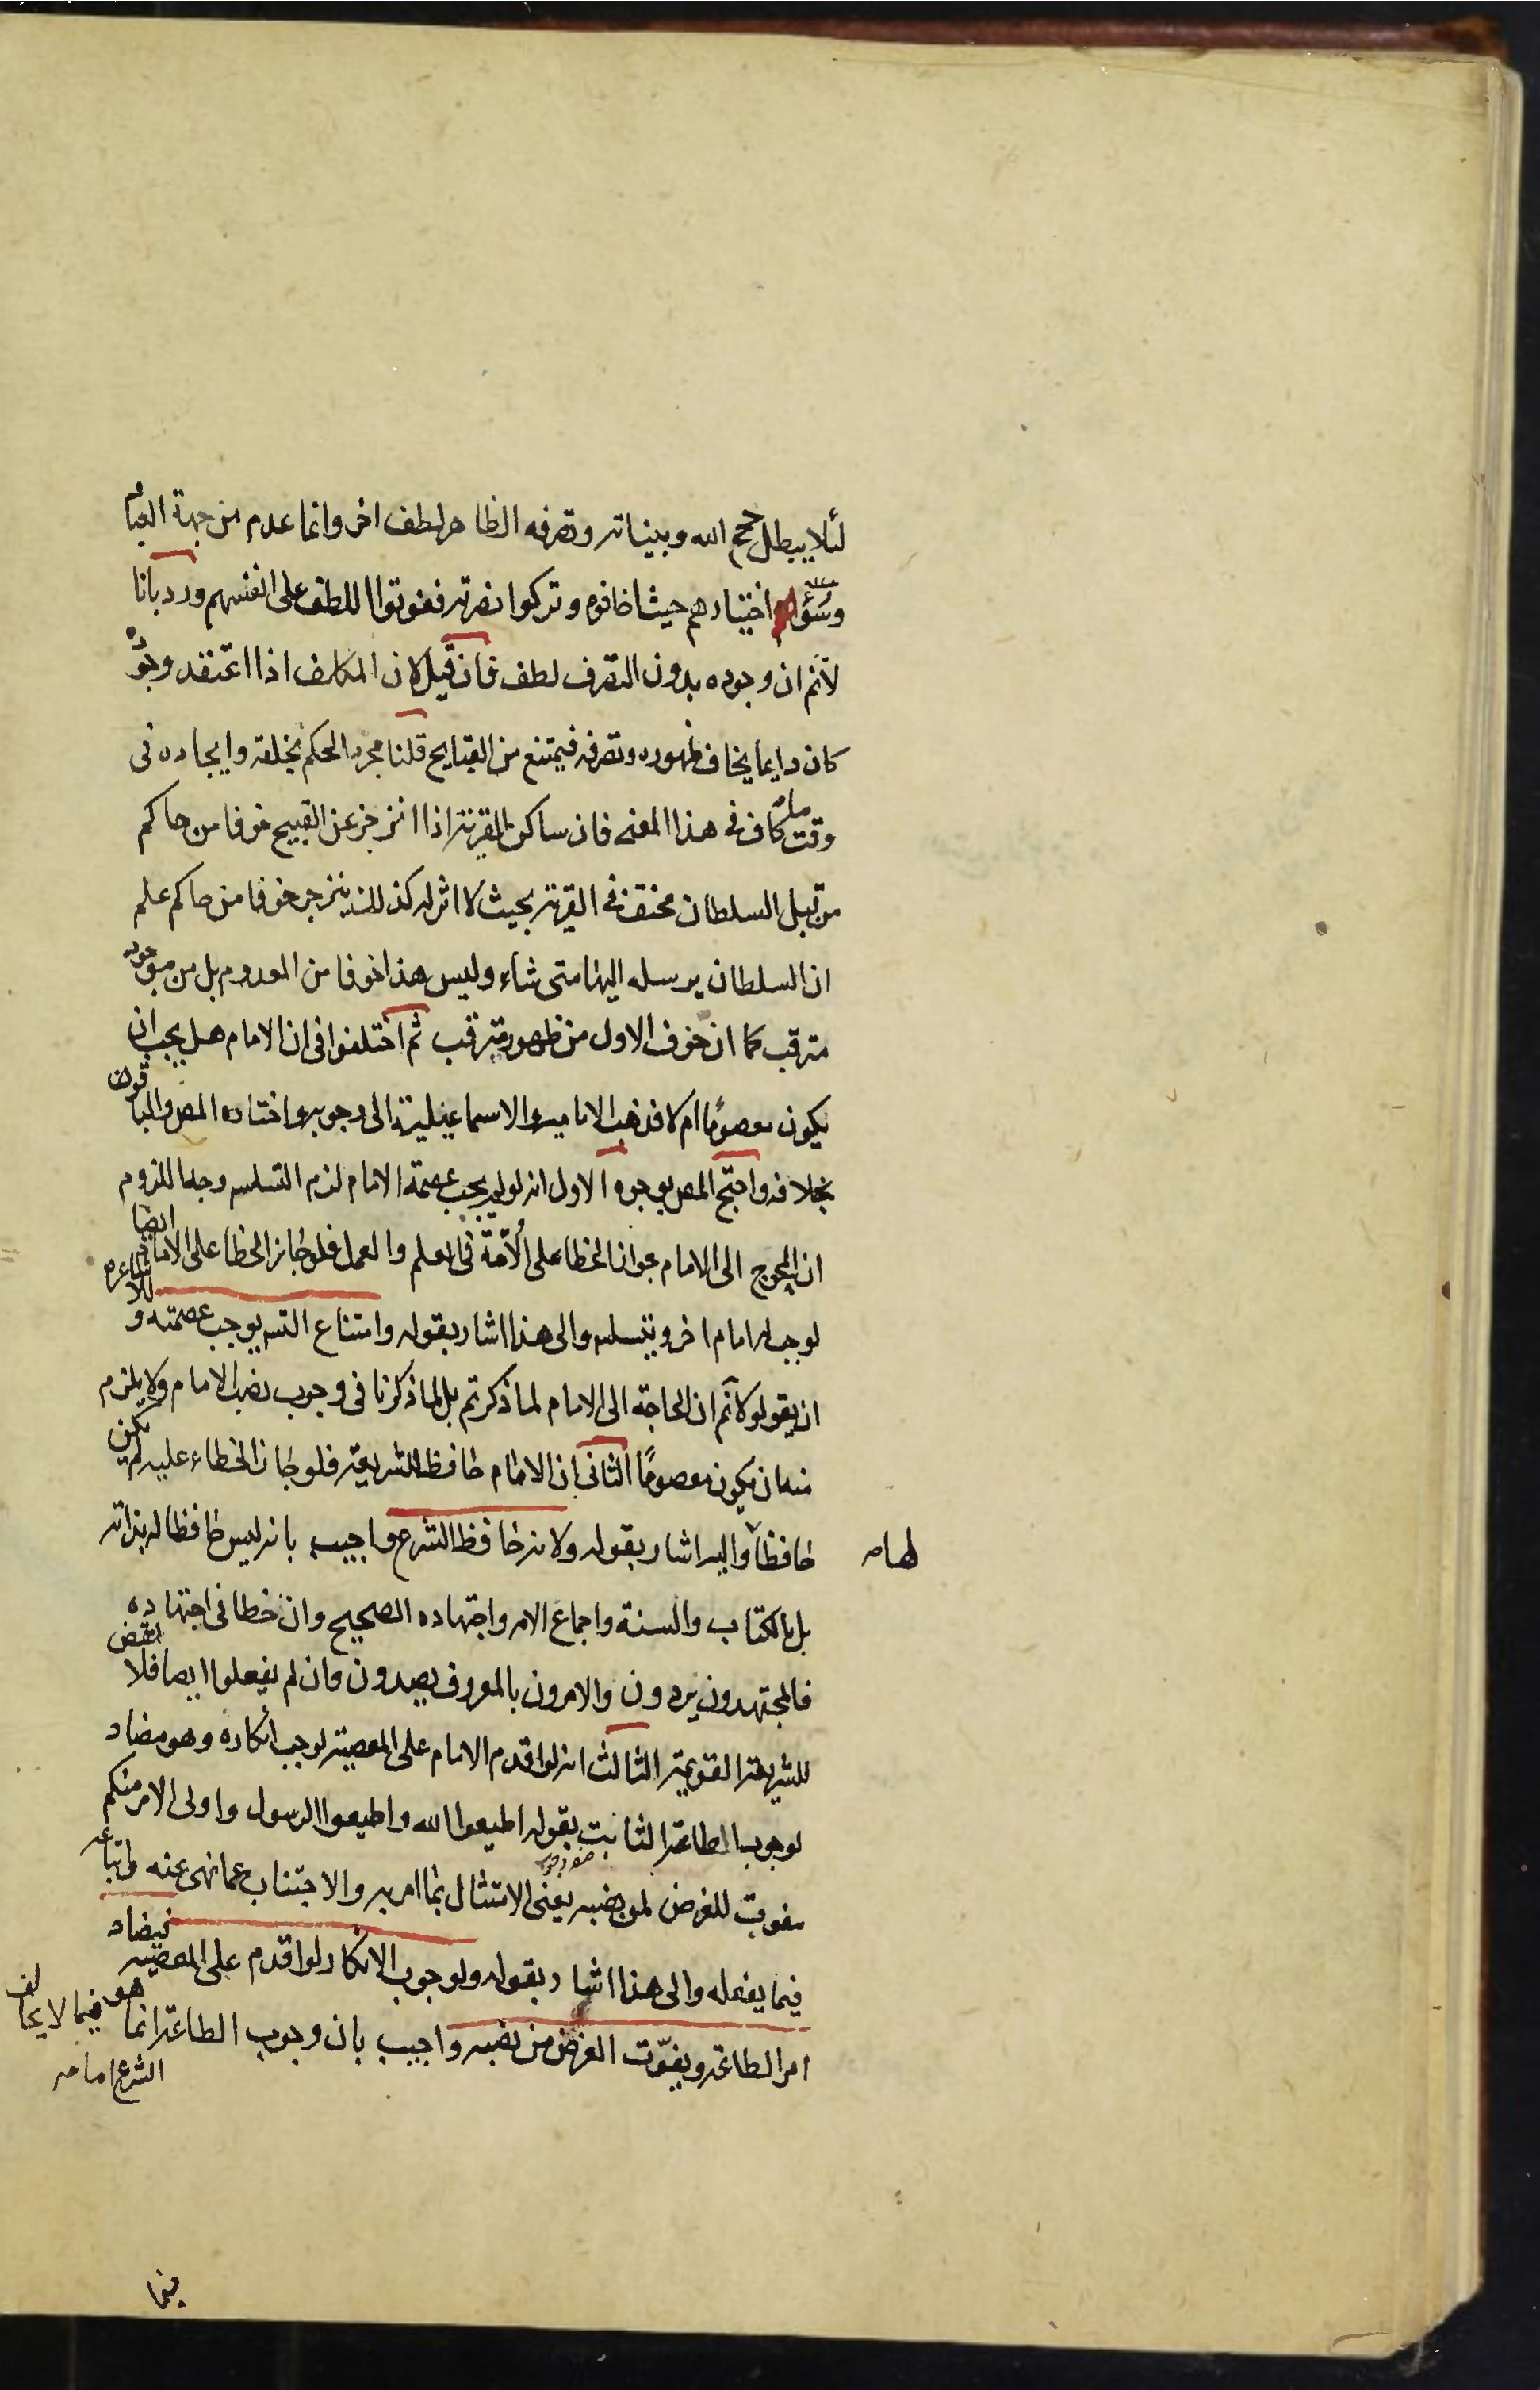 لئلا يبطل حجج الله وبيناته وتصرفه الظاهر لطف اخر وانما عدم من جهة العباد
وسوء اختيارهم حيث اخافوه وتركوا نصرته ففوتوا اللطف على انفسهم ورد بانا
لانم ان وجوده بدون التصرف لطف فان قيل لان المكلف اذا اعتقد وجوده
كان دايما يخاف ظهوره وتصرفه فيمتنع من القبايح قلنا مجرد الحكم بخلقه وايجاده فى
وقت ما كاف فى هذا المعنى فان ساكن القرية اذا انزجر عن القبيح خوفا من حاكم
من قبل السلطان مختف فى القرية بحيث لا اثر له كذلك ينزجر خوفا من حاكم علم
ان السلطان يرسله اليها متى شاء وليس هذا خوفا من المعدوم بل من موجود
مترقب كما ان خوف الاول من ظهور مترقب ثم اختلفوا فى ان الامام هل يجب ان
يكون معصوما ام لا فذهب الامامية والاسماعيلية الى وجوبه واختاره المص والباقون
بخلافه واحتج المص بوجوه الاول انه لو لم يجب عصمة الامام لزم التسلسل وجه اللزوم
ان المحوج الى الامام جواز الخطا على الأمة فى العلم والعمل فلو جاز الخطا على الامام ايضا
لوجب له امام اخر ويتسلسل والى هذا اشار بقوله وامتناع التسلسل يوجب عصمته و للاشاعرة
ان يقولوا لانم ان الحاجة الى الامام لما ذكرتم بل لما ذكرنا فى وجوب نصب الامام ولا يلزم
منه ان يكون معصومًا الثانى ان الامام حافظ للشريعة فلو جاز الخطاء عليه لم يكن
حافظا لها واليه اشار بقوله ولانه حافظ الشرع واجيب بانه ليس حافظا له بذاته
بل بالكتاب والسنة واجماع الامة واجتهاده الصحيح وان خطا فى اجتهاده
فالمجتهدون يردون والامرون بالمعروف يصدون وان لم يفعلوا ايضا فلا نقض
للشريعة القويمة الثالث انه لو اقدم الامام على المعصية لوجب انكاره وهو مضاد
لوجوب الطاعة الثابت بقوله اطيعوا الله واطيعوا الرسول واولى الامر منكم
مفوت للغرض من نصبه يعنى الامتثال بما امر به والاجتناب عما نهى عنه واتباعه
فيما يفعله والى هذا اشار بقوله ولوجوب الانكار لو اقدم على المعصية فيضاد
امر الطاعة ويفوّت الغرض من نصبه واجيب بان وجوب الطاعة انما هو فيما لا يخالف
الشرع اما